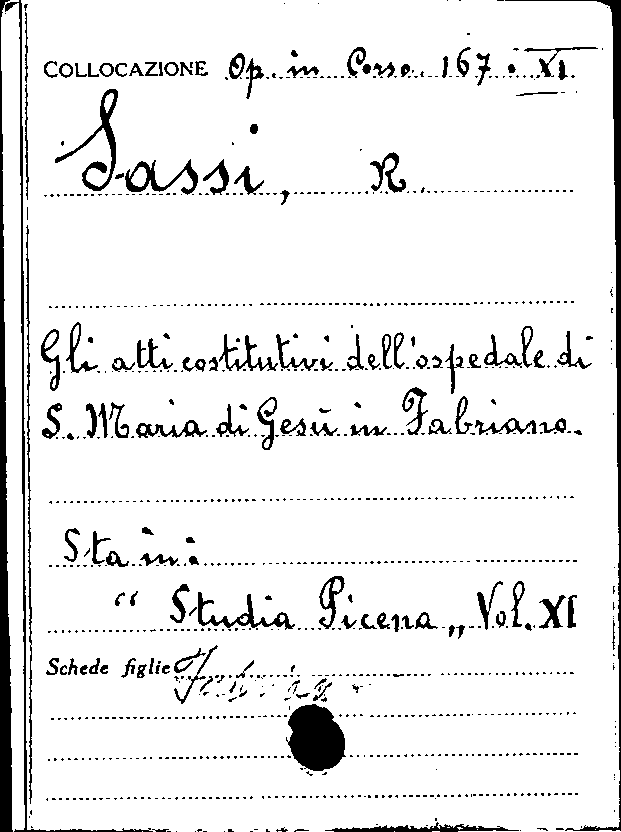 COLLOCAZIONE Op. in Corso. 167. XI
Sassi, R.
Gli atti costitutivi dell'ospedale di
S. Maria di Gesù in Fabriano.
Sta in:
“ Studia Picena „ Vol. XI
Schede figlie